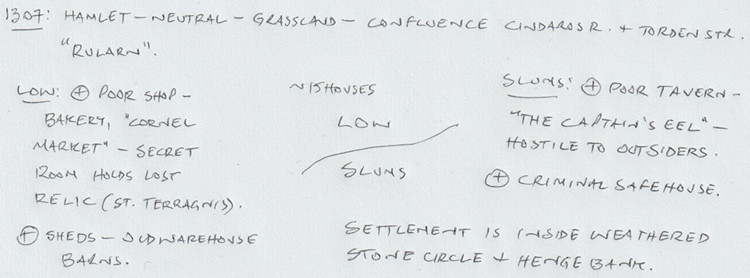 1307: HAMLET - NEUTRAL - GRASSLAND - CONFLUENCE CINDAROS R. + TORDEN STR.
"RULARN".
LOW: ⊕ POOR SHOP -
BAKERY, "CORNEL
MARKET" - SECRET
ROOM HOLDS LOST
RELIC (ST. TERRAGNIS).
⊕ SHEDS - OLD WAREHOUSE
BARNS.
~15 HOUSES
LOW
SLUMS
SLUMS: ⊕ POOR TAVERN -
"THE CAPTAIN'S EEL" -
HOSTILE TO OUTSIDERS.
⊕ CRIMINAL SAFEHOUSE.
SETTLEMENT IS INSIDE WEATHERED
STONE CIRCLE + HENGE BANK.